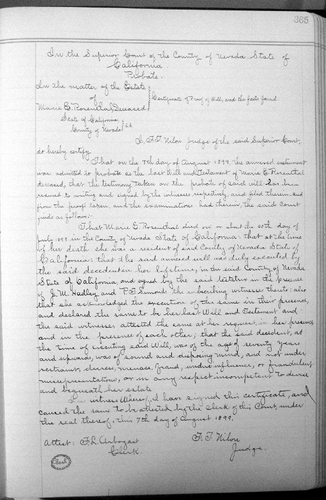 365
In the Superior Court of the County of Nevada State of
California
Probate.
In the matter of the Estate
of
Marie E. Rosenthal, Deceased
Certificate of Proof of Will, and the facts found.
State of California
County of Nevada } ss
I, F. T. Nilon judge of the said Superior Court,
do hereby certify
That on the 7th day of August 1899, the annexed instrument
was admitted to probate as the Last Will and Testament of Marie E. Rosenthal
deceased, that the testimony taken on the probate of said will has been
reduced to writing and signed by the witnesses respectively, and filed therein. And
from the proof taken and the examinations had therein, the said Court
finds as follows:
That Marie E. Rosenthal died on or about the day of
July 1899 in the County of Nevada State of California. that at the time
of her death she was a resident of said County of Nevada State of
California: that the said annexed will was duly executed by
the said decedent in her lifetime, in the said County of Nevada
State of California and signed by the said testatrix in the presence
of J. M. Hadley and the subscribing witnesses thereto also
that she acknowledged the execution of the same in their presence,
and declared the same to be her last Will and Testament and
the said witnesses attested the same at her request, in her presence
and in the presence of each other; that the said decedent, at
the time of executing said Will, was of the age of seventy years
and upwards, was of sound and disposing mind, and not under
restraint, duress, menace, fraud, undue influence, or fraudulent
misrepresentations, or in any respect incompetent to devise
and bequeath her estate.
In witness Whereof, I have signed this certificate, and
caused the same to be attested by the Clerk of this Court, under
the seal thereof, this 7th day of August 1899.
Attest: F. L. Arbogast
Clerk.
F. T. Nilon
Judge.
Seal